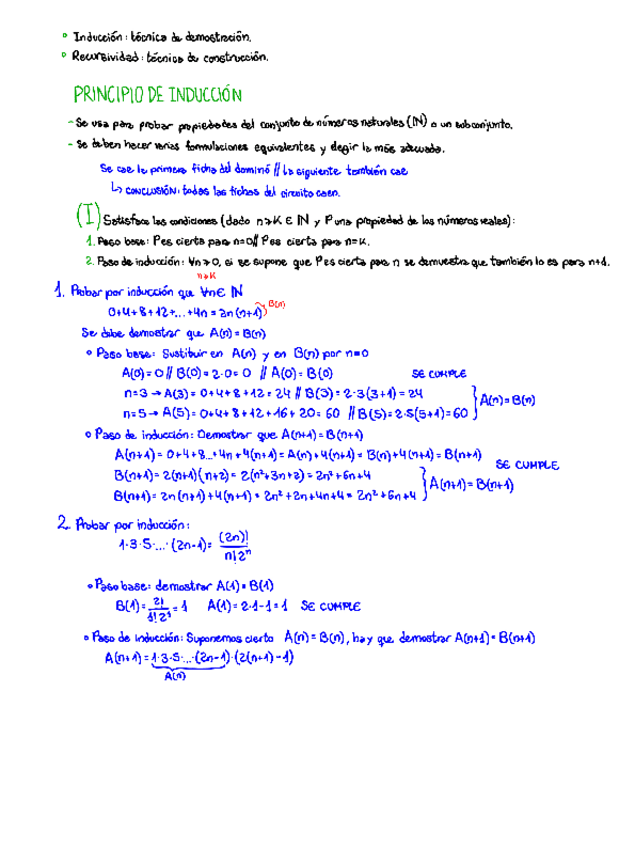 ° Inducción: técnica de demostración.
° Recursividad: técnica de construcción.
PRINCIPIO DE INDUCCIÓN
- Se usa para probar propiedades del conjunto de números naturales (ℕ) o un subconjunto.
- Se deben hacer varias formulaciones equivalentes y elegir la más adecuada.
Se cae la primera ficha del dominó // La siguiente también cae
↳ CONCLUSIÓN: todas las fichas del circuito caen.
(I) Satisface las condiciones (dado n≥K ∈ ℕ y P una propiedad de los números reales):
1. Paso base: P es cierta para n=0 // P es cierta para n=K.
2. Paso de inducción: ∀n≥0, si se supone que P es cierta para n se demuestra que también lo es para n+1.
n≥K
1. Probar por inducción que ∀n∈ ℕ
0+4+8+12+...+4n = 2n(n+1) B(n)
Se debe demostrar que A(n) = B(n)
° Paso base: Sustituir en A(n) y en B(n) por n=0
A(0) = 0 // B(0) = 2·0 = 0 // A(0) = B(0) SE CUMPLE
n=3 → A(3) = 0+4+8+12 = 24 // B(3) = 2·3(3+1) = 24
n=5 → A(5) = 0+4+8+12+16+20 = 60 // B(5) = 2·5(5+1) = 60 } A(n) = B(n)
° Paso de inducción: Demostrar que A(n+1) = B(n+1)
A(n+1) = 0+4+8...+4n+4(n+1) = A(n)+4(n+1) = B(n)+4(n+1) = B(n+1) SE CUMPLE
B(n+1) = 2(n+1)(n+2) = 2(n²+3n+2) = 2n²+6n+4
B(n+1) = 2n(n+1)+4(n+1) = 2n²+2n+4n+4 = 2n²+6n+4 } A(n+1) = B(n+1)
2. Probar por inducción:
1·3·5·...·(2n-1) = (2n)! / n!2ⁿ
° Paso base: demostrar A(1) = B(1)
B(1) = 2! / 1!2¹ = 1 A(1) = 2·1-1 = 1 SE CUMPLE
° Paso de inducción: Suponemos cierto A(n) = B(n), hay que demostrar A(n+1) = B(n+1)
A(n+1) = 1·3·5·...·(2n-1)·(2(n+1)-1)
A(n)